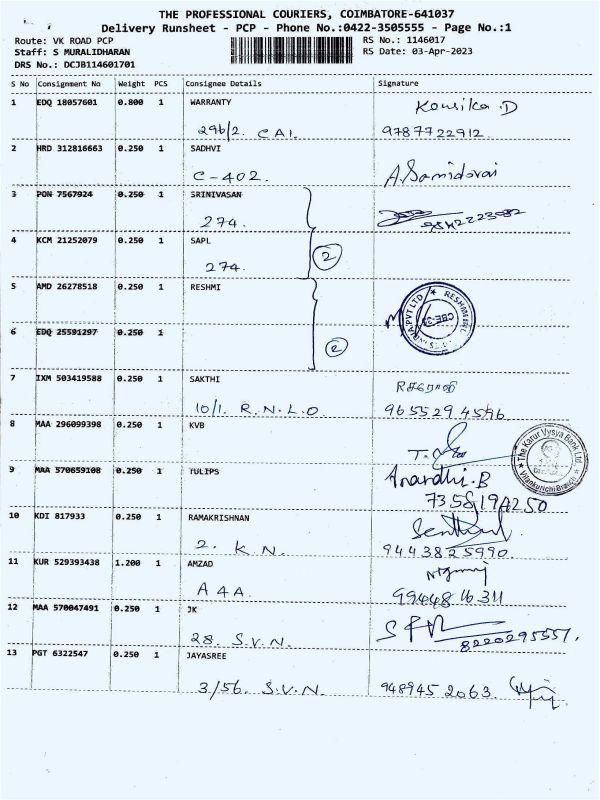 THE PROFESSIONAL COURIERS, COIMBATORE-641037
Delivery Runsheet - PCP - Phone No.:0422-3505555 - Page No.:1
Route: VK ROAD PCP
Staff: S MURALIDHARAN
DRS No.: DCJB114601701
RS No.: 1146017
RS Date: 03-Apr-2023
S No Consignment No Weight PCS Consignee Details Signature
1 EDQ 18057601 0.800 1 WARRANTY Kousika.D
296/2. CAI. 9787722912.
2 HRD 312816663 0.250 1 SADHVI
C-402. A.Samidorai
3 PON 7567924 0.250 1 SRINIVASAN
274.
4 KCM 21252079 0.250 1 SAPL
274. 2
5 AMD 26278518 0.250 1 RESHMI
6 EDQ 25591297 0.250 1
2
7 IXM 503419588 0.250 1 SAKTHI
10/1. R.N.L.O. 9655294596
8 MAA 296099398 0.250 1 KVB
The Karur Vysya Bank Ltd.
Vilankurichi Branch
9 MAA 570659108 0.250 1 TULIPS Anandhi.B
7358194250
10 KDI 817933 0.250 1 RAMAKRISHNAN Senthil
2. K.N. 9443825990
11 KUR 529393438 1.200 1 AMZAD
A 4A 9944816311
12 MAA 570047491 0.250 1 JK
28. S.V.N. 8220295557.
13 PGT 6322547 0.250 1 JAYASREE
3/56. S.V.N. 9489452063